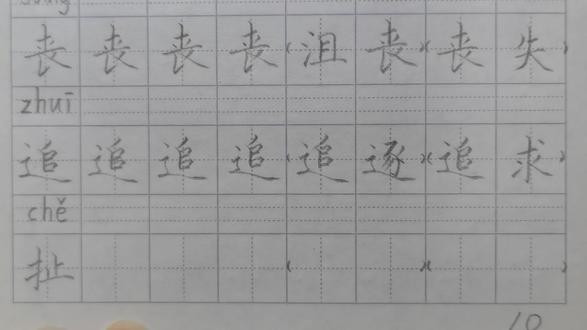 丧丧丧丧(沮丧)(丧失)
zhuī
追追追追(追逐)(追求)
chě
扯(  )(  )
10